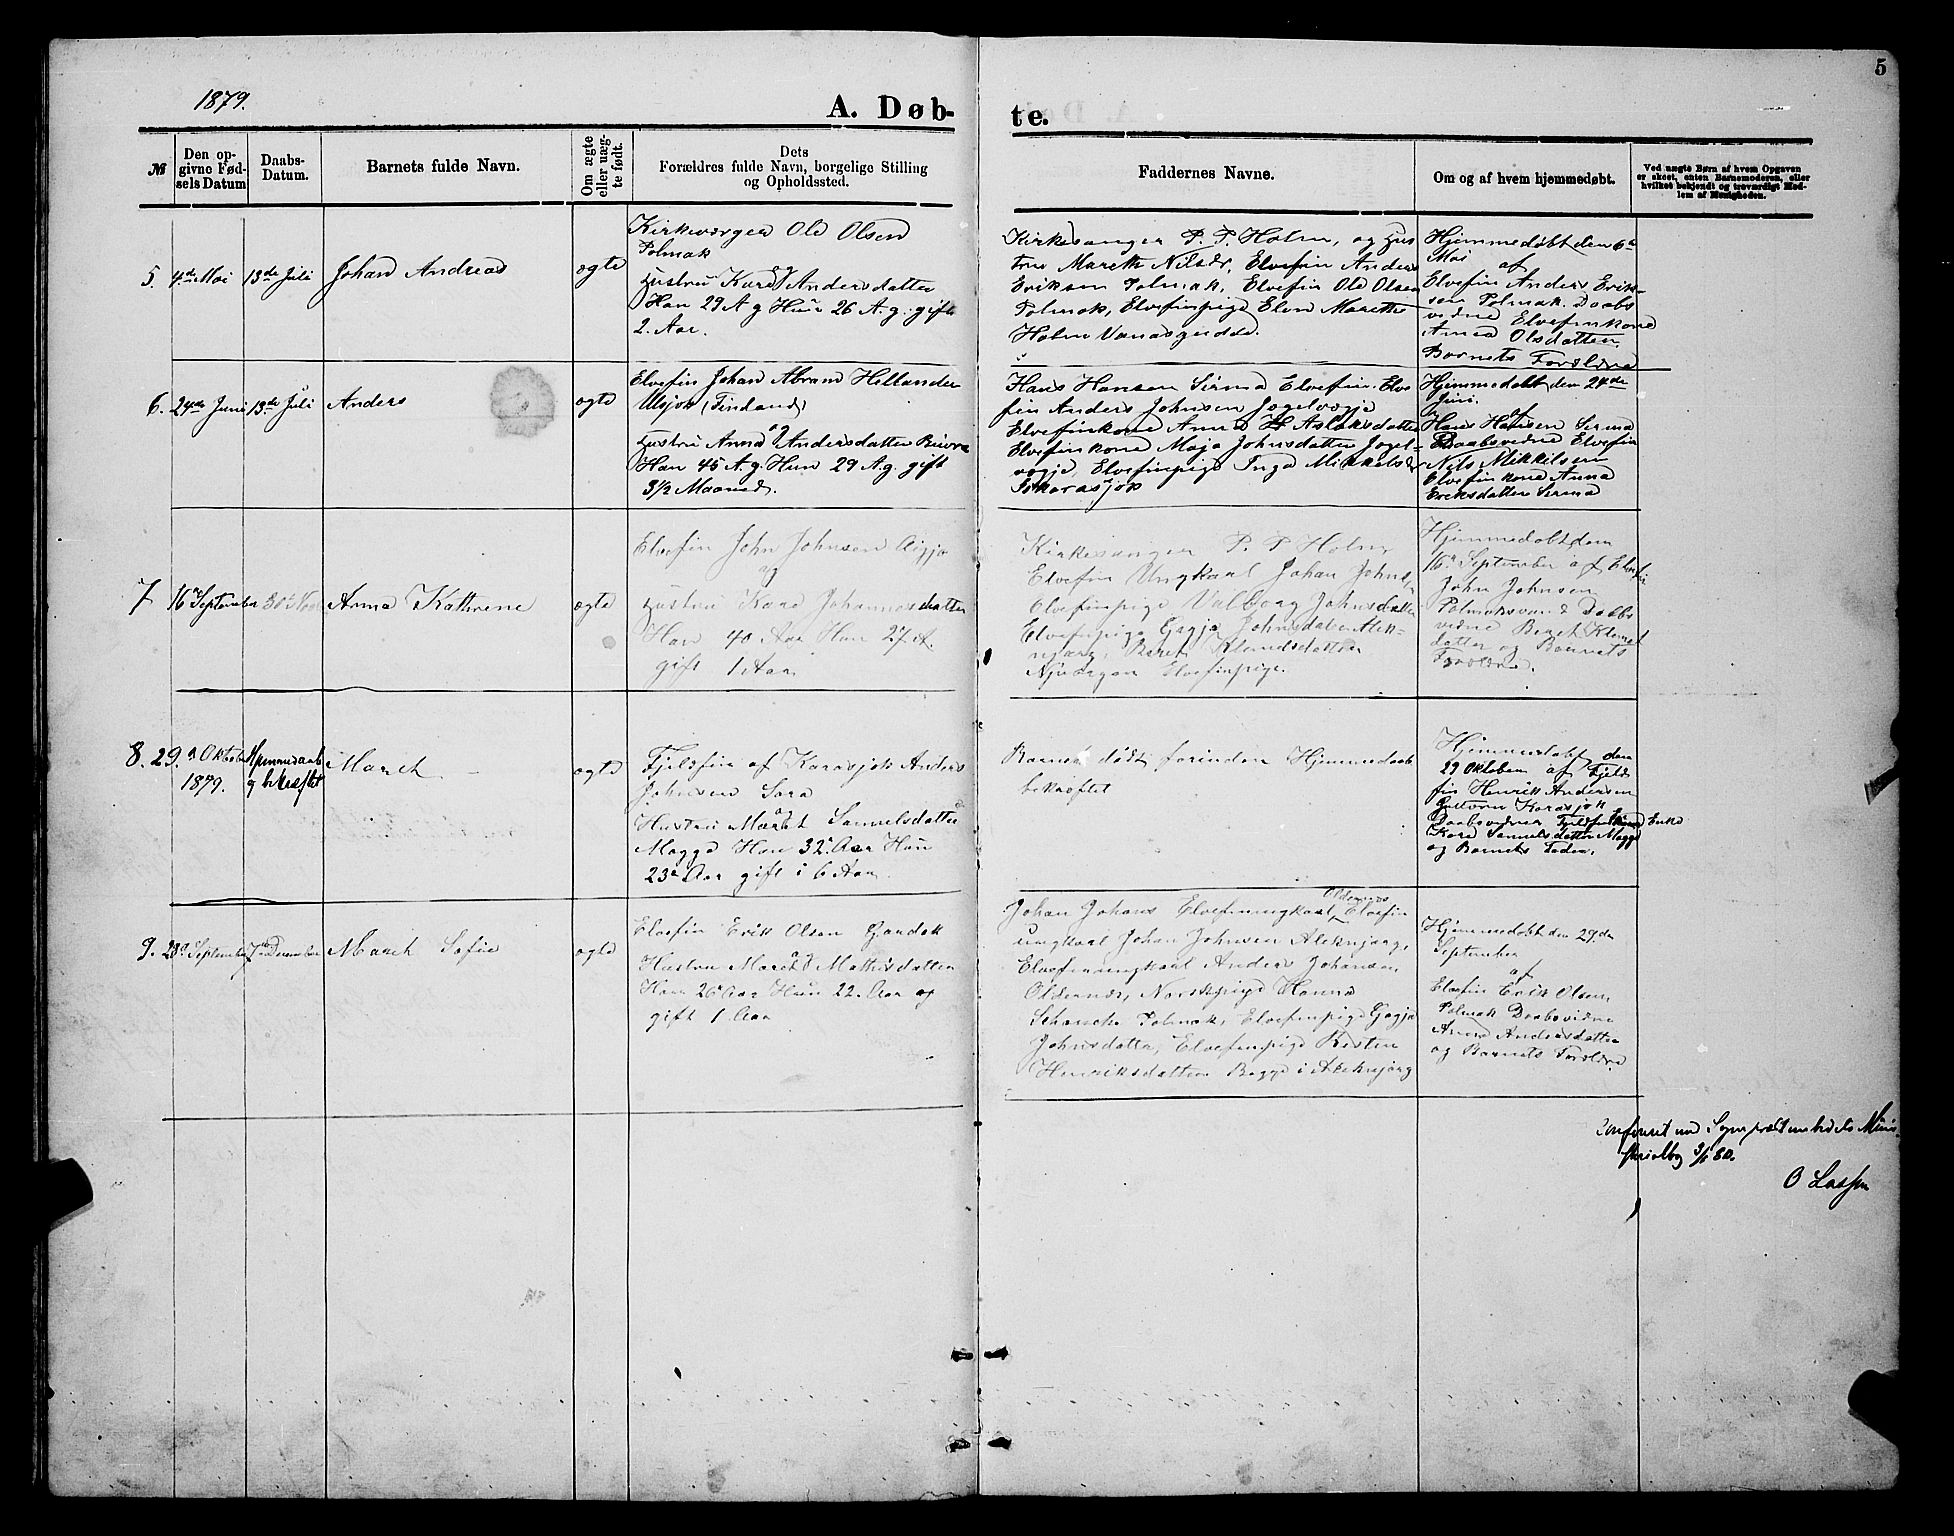 5
1879.
A. Døb-
te.
№
Den op-
givne Fød-
sels Datum
Daabs-
Datum.
Barnets fulde Navn.
Om ægte
eller uæg-
te født.
Dets
Forældres fulde Navn, borgelige Stilling
og Opholdssted.
Faddernes Navne.
Om og af hvem hjemmedøbt.
Ved uægte Børn af hvem Opgaven
er skeet, enten Barnemoderen, eller
hvilket bekjendt og troværdigt Med-
lem af Menigheden.
5.
4de Mai
13de Juli
Johan Andreas
ægte
Kirkeværger Ole Olsen
Polmak
og
Hustru Kare Andersdatter
Han 29 A g Hun 26 A. g. gift
2. Aar.
Kirkesanger P. P. Holm, og Hus
tru Mareth Nilsdr, Elvefin Anders
Eriksen Polmak, Elvefin Ole Olsen
Polmak, Elvefinpige Elen Marethe
Holm
Hjemmedøbt den 6te
Mai af
Elvefin Anders Erik-
sen Polmak. Daabs
vidne Elvefinkone
Anna Olsdatter.
Barnets Forældre
6.
24de Juni
13de Juli
Anders
ægte
Elvefin Johan Abram Hellander
Utsjok (Finland)
og
Hustru Anna Andersdatter
Han 45 A.g. Hun 29 A.g. gift
3½ Maaned.
Hans Hansen Sirma Elvefin. Elve
fin Anders Johnsen
Elvefinkone Anna H Aslaksdatter
Elvefinkone Maja Johnsdatter
Elvefinpige Inga Mikkelsdr
Hjemmedøbt den 24de
Juni.
af
Hans Hansen Sirma
Daabsvidne Elvefin
Nils Mikkelsen
Elvefinkone Anna
Eriksdatter Sirma
7
16de September
30te
Anna Kathrine
ægte
Elvefin John Johnsen
og
Hustru Kare Johannesdatter
Han 40 Aar Hun 27 A.
gift 1 Aar
Kirkesanger P. P Holm
Elvefin Ungkarl Johan Johns
Elvefinpige Valborg Johnsdatter
Elvefinpige Gagja Johnsdatter Alek-
njarg, Beret
Elvefinpige.
Hjemmedøbt den
16de September af Elvefin
John Johnsen
Polmaksvand Daabs
vidne Beret
datter og Barnets
Forældre.
8.
29de Oktober
1879.
Hjemmedaab
g bekræftet
Mareh
ægte
Fjeldfin af Karasjok Anders
Johnsen Sara
og
Hustru Maret Samuelsdatter
Magga Han 32 Aar Hun
23 Aar gift i 6 Aar.
Barnet død forinden Hjemmedaab
bekræftet
Hjemmedøbt den
29 Oktober af Fjeld
fin Henrik Andersen
Karasjok
Daabsvidner Fjeldfin Enke
Kare Samuelsdatter Magga
og Barnets Fader.
9.
28de September
7de December
Mareh Sofie
ægte
Elvefin Erik Olsen
og
Hustru Mareh Mathisdatter
Han 26 Aar Hun 22. Aar og
gift 1. Aar
Johan Johans Elvefinungkarl, Elvefin
ungkarl Johan Johnsen Aleknjarg,
Elvefinungkarl Anders Johansen
Oldernæs, Norskpige Hanna
Polmak, Elvefinpige Gagja
Johnsdatter, Elvefinpige Kirsten
Henriksdatter Begge i Aleknjarg
Hjemmedøbt den 29de
September
af
Elvefin Erik Olsen
Polmak Daabsvidne
Anna Andersdatter
og Barnets Forældre
Confereret med Sognepræstembedets Minis-
terialbog 3/1 80.
O Lassen